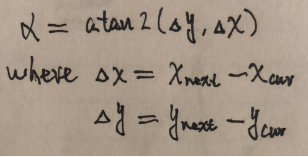 α = atan2(Δy, Δx)
where Δx = x_next - x_cur
Δy = y_next - y_cur